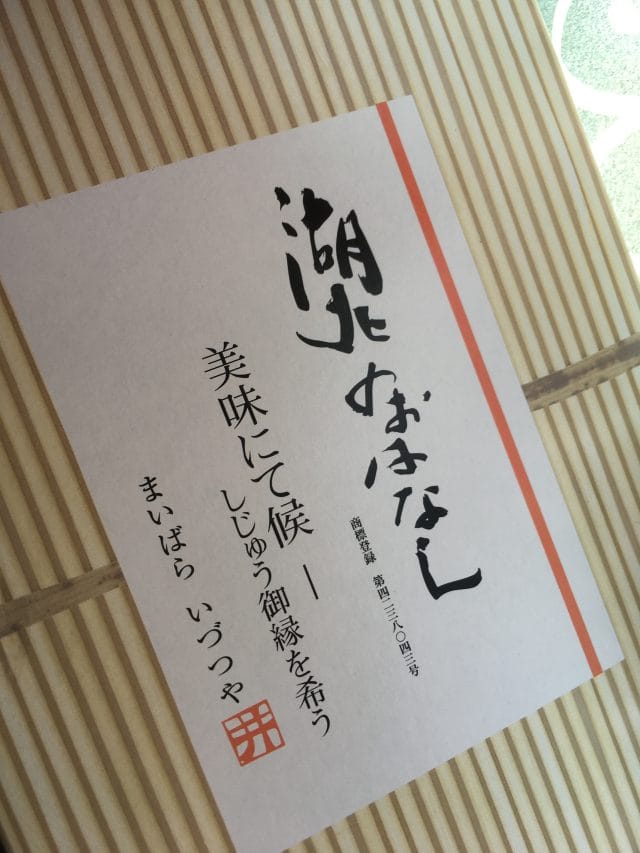 湖北のおはなし
商標登録 第四二三八〇四三号
美味にて候 ー
しじゅう御縁を希う
まいばら いづつや
井